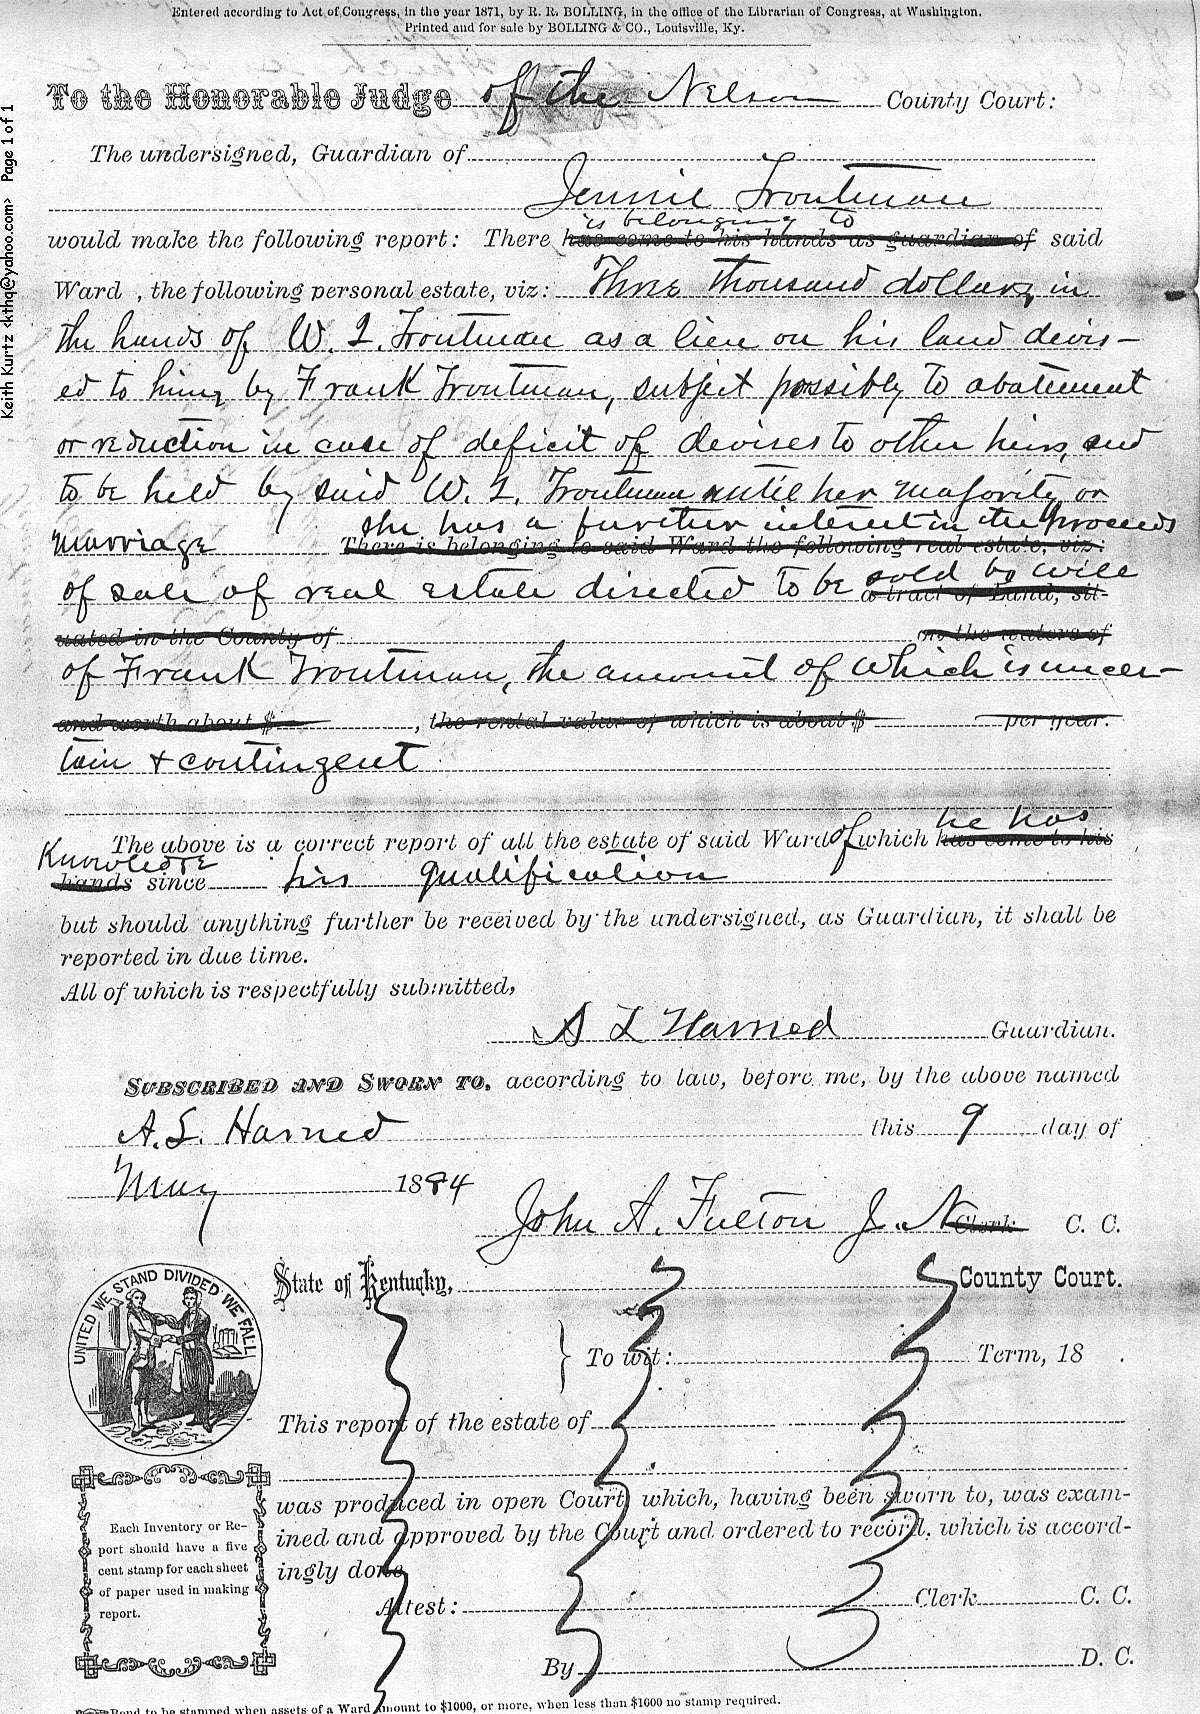 Entered according to Act of Congress, in the year 1871, by R. R. BOLLING, in the office of the Librarian of Congress, at Washington.
Printed and for sale by BOLLING & CO., Louisville, Ky.
Keith Kurtz <kthq@yahoo.com> Page 1 of 1
To the Honorable Judge of the Nelson County Court:
The undersigned, Guardian of
Jennie Troutman
is belonging to
would make the following report: There has come to his hands as guardian of said
Ward , the following personal estate, viz: Three thousand dollars, in
the hands of W. L. Troutman as a lien on his land devis-
ed to him, by Frank Troutman, subject possibly to abatement
or reduction in case of deficit of devises to other heirs, and
to be held by said W. L. Troutman until her majority or
she has a further interest in the proceeds
marriage There is belonging to said Ward the following real estate, viz:
of sale of real estate directed to be sold by will
a tract of Land, sit-
uated in the County of on the waters of
of Frank Troutman, the amount of which is uncer-
and worth about $ , the rental value of which is about $ per year.
tain & contingent
The above is a correct report of all the estate of said Ward of which he has
has come to his
Knowledge
hands since his qualification
but should anything further be received by the undersigned, as Guardian, it shall be
reported in due time.
All of which is respectfully submitted,
A L Harned Guardian.
SUBSCRIBED AND SWORN TO, according to law, before me, by the above named
A. L. Harned this 9 day of
May 1884
John A. Fulton J. N Clerk C. C.
State of Kentucky, County Court.
UNITED WE STAND DIVIDED WE FALL
To wit: Term, 18 .
This report of the estate of
was produced in open Court, which, having been sworn to, was exam-
ined and approved by the Court and ordered to record, which is accord-
ingly done
Attest: Clerk C. C.
By D. C.
Each Inventory or Re-
port should have a five
cent stamp for each sheet
of paper used in making
report.
Bond to be stamped when assets of a Ward amount to $1000, or more, when less than $1000 no stamp required.